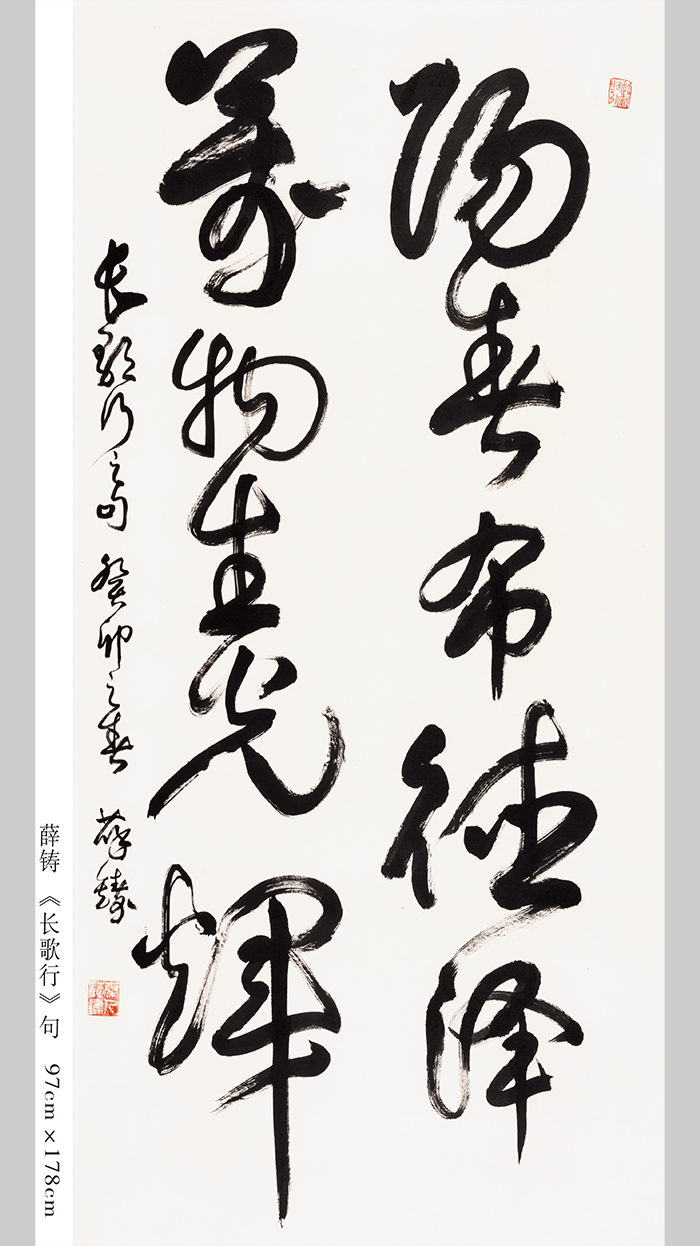 陽春布德泽
萬物生光輝
长歌行之句 癸卯之春 薛铸
薛铸 《长歌行》句 97cm×178cm